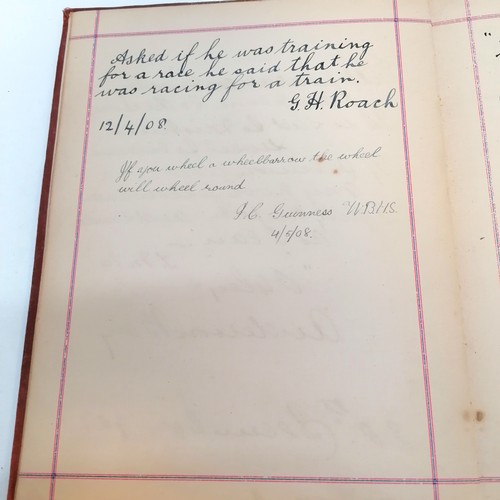 Asked if he was training
for a race he said that he
was racing for a train.
G. H. Roach
12/4/08.
If you wheel a wheelbarrow the wheel
will wheel round
J. C. Guinness W.B.H.S.
4/5/08.
"